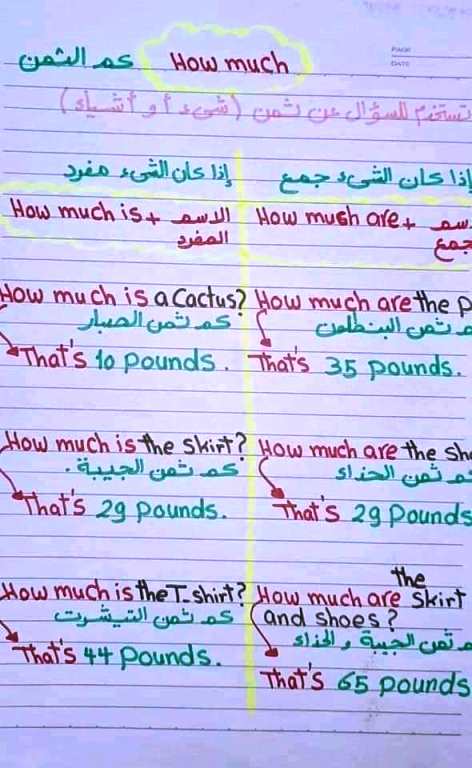 كم الثمن How much
PAGE
DATE
تستخدم للسؤال عن ثمن (شيء أو أشياء)
إذا كان الشيء مفرد
How much is + الاسم
المفرد
How much is a Cactus?
كم ثمن الصبار
That's 10 pounds.
How much is the skirt?
كم ثمن الجيبة.
That's 29 pounds.
How much is the T.shirt?
كم ثمن التيشرت
That's 44 pounds.
إذا كان الشيء جمع
How much are +
جمع
How much are the p
ثمن البنطلون
That's 35 pounds.
How much are the Sh
ثمن الحذاء
That's 29 pounds
How much are the skirt
and shoes?
ثمن الجيبة و الحذاء
That's 65 pounds